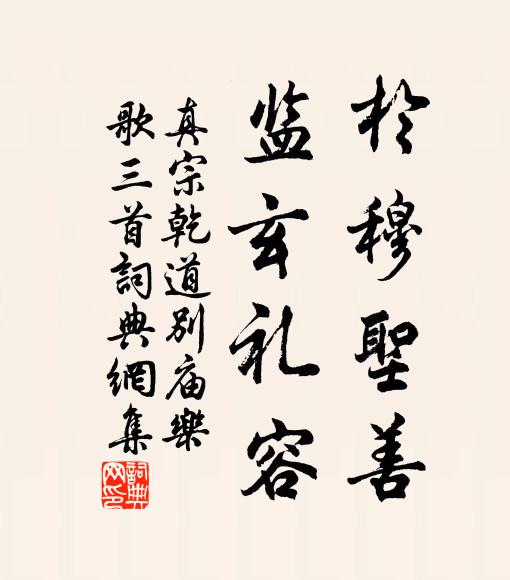 於穆聖善
监玄礼容
真宗乾道别庙樂
歌三首詞典網集
詞典网印